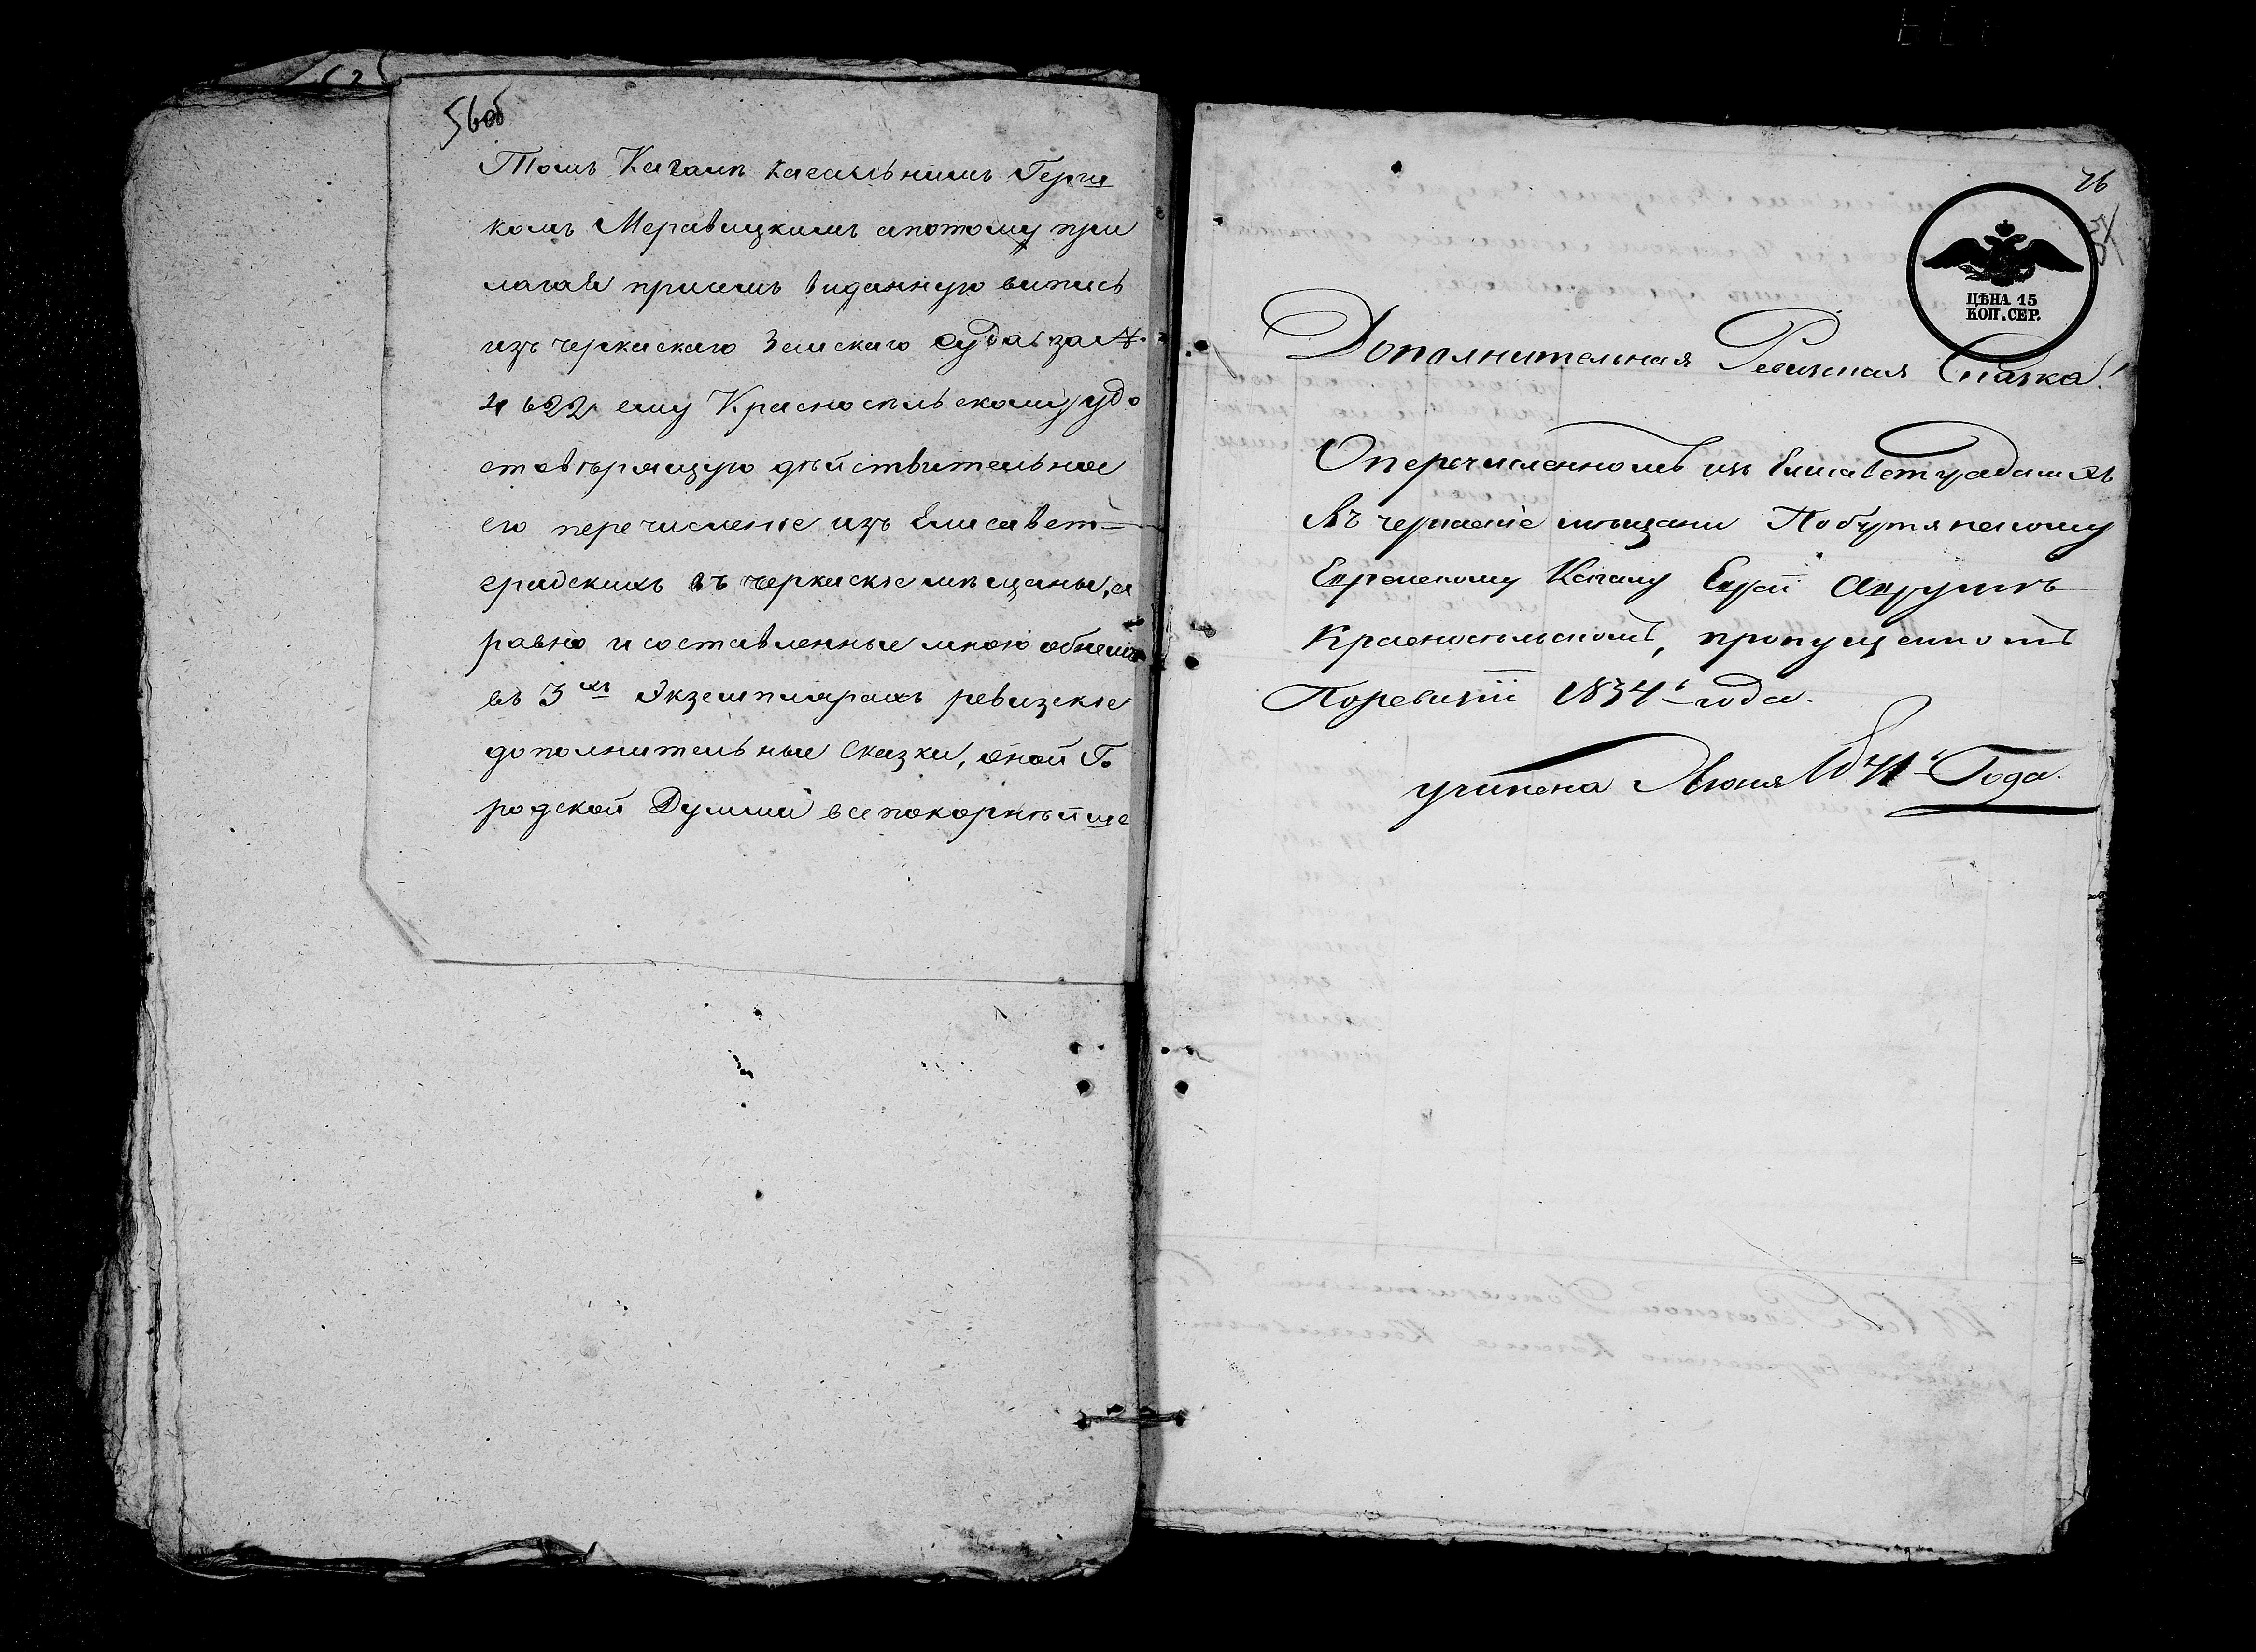 56 об
Томъ Кагалѣ кагальнимъ Герш
комъ Меравицкимъ а потому при
лагая присемъ виданную випись
изъ черкаскаго Земскаго суда за №
4622 ему Красносельскому удо
стовѣряющую дѣйствительное
его перечисленіе изъ Елисавет
градскихъ въ черкаскіе мѣщаны, а
равно и составленные мною обнемъ
въ 3хъ Экземплярахъ ревизскіе
дополнительные Сказки, оной Го
родской Думми всепокорнѣйше
76
ЦѢНА 15
КОП. СЕР.
Дополнительная Ревизская Сказка.
О перечисленномъ изъ Елисаветградскихъ
въ черкаскіе мѣщани По
Еврейскому Кагалу Еврей
Красносельскомъ, пропущенномъ
По ревизіи 1834 года.
учинена Июня 1841 Года.